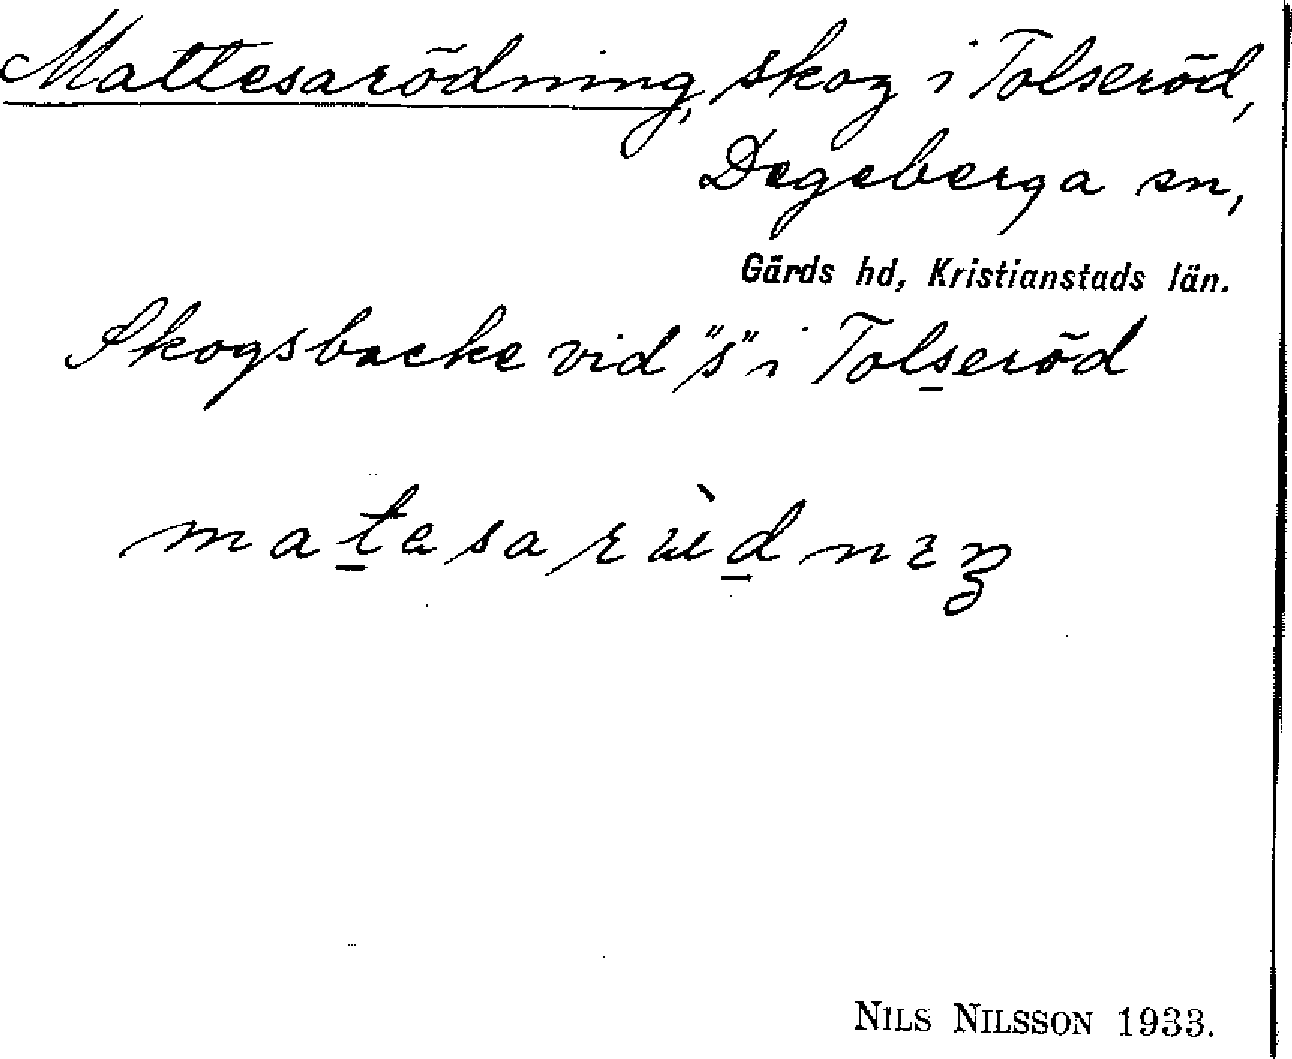 Mattesarödning, skog i Tolseröd,
Degeberga sn,
Gärds hd, Kristianstads län.
Skogsbacke vid "s" i Tolseröd
NILS NILSSON 1933.